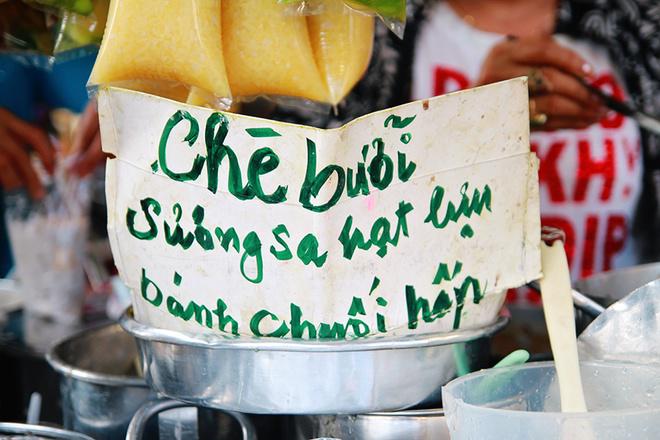 Chè bưỡi
Sương sa hạt lựu
bánh chuối hấp